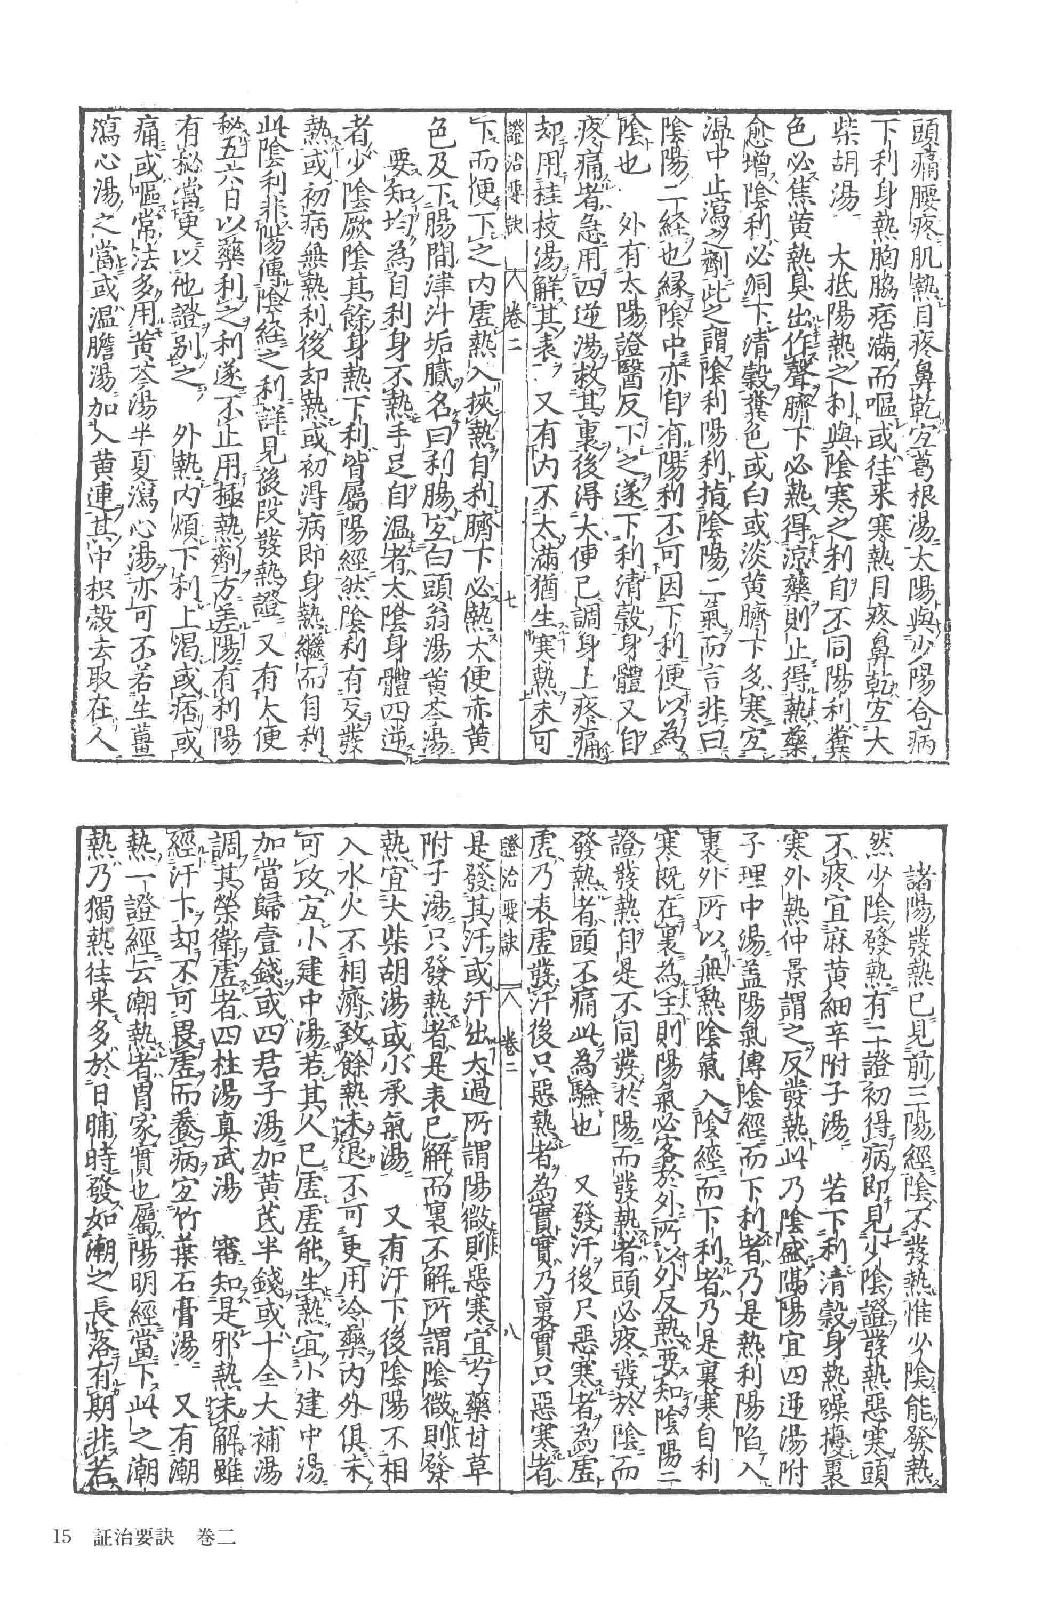 頭痛腰疼肌熱目疼鼻乾宜葛根湯太陽與少陽合病
下利身熱胸脇痞滿而嘔或往來寒熱目疼鼻乾宜大
柴胡湯　大抵陽熱之利與陰寒之利自不同陽利糞
色必焦黄熱臭出作聲臍下必熱得涼藥則止得熱藥
愈增陰利必洞下清穀糞色或白或淡黄臍下多寒宜
温中止瀉之劑此之謂陰利陽利指陰陽二氣而言非曰
陰陽二經也縁陰中亦自有陽利不可因下利便以為
陰也　外有太陽證醫反下之遂下利清穀身體又自
疼痛者急用四逆湯救其裏後得大便已調身上疼痛
却用桂枝湯解其表　又有内不太滿猶生寒熱未可
證治要訣　卷二　七
下而便下之内虚熱入挾熱自利臍下必熱大便赤黄
色及下腸間津汁垢膩名曰利腸宜白頭翁湯黄芩湯
要知均為自利身不熱手足自温者太陰身體四逆
者少陰厥陰其餘身熱下利皆屬陽經然陰利有反發
熱或初病無熱利後却熱或初得病即身熱繼而自利
此陰利非陽傳陰經之利詳見後段發熱證　又有大便
秘五六日以藥利之利遂不止用極熱劑方差陽有利陽
有秘當更以他證別之　外熱内煩下利上渴或痞或
痛或嘔常法多用黄芩湯半夏瀉心湯亦可不若生薑
瀉心湯之當或温膽湯加入黄連其中枳殼去取在人
諸陽發熱已見前三陽經陰不發熱惟少陰能發熱
然少陰發熱有二證初得病即見少陰證發熱惡寒頭
不疼宜麻黄細辛附子湯　若下利清穀身熱躁擾裏
寒外熱仲景謂之反發熱此乃陰盛隔陽宜四逆湯附
子理中湯蓋陽氣傳陰經而下利者乃是熱利陽陷入
裏外所以無熱陰氣入陰經而下利者乃是裏寒自利
寒既在裏為主則陽氣必客於外所以外反熱要知陰陽二
證發熱自是不同發於陽而發熱者頭必疼發於陰而
發熱者頭不痛此為驗也　又發汗後只惡寒者為虚
虚乃表虚發汗後只惡熱者為實實乃裏實只惡寒者
證治要訣　卷二　八
是發其汗或汗出太過所謂陽微則惡寒宜芍藥甘草
附子湯只發熱者是表已解而裏不解所謂陰微則發
熱宜大柴胡湯或小承氣湯　又有汗下後陰陽不相
入水火不相濟致餘熱未退不可更用冷藥内外俱未
可攻宜小建中湯若其人已虚虚能生熱宜小建中湯
加當歸壹錢或四君子湯加黄芪半錢或十全大補湯
調其榮衛虚者四柱湯真武湯　審知是邪熱未解雖
經汗下却不可畏虚而養病宜竹葉石膏湯　又有潮
熱一證經云潮熱者胃家實也屬陽明經當下此之潮
熱乃獨熱往来多於日晡時發如潮之長落有期非若
15　証治要訣　巻二